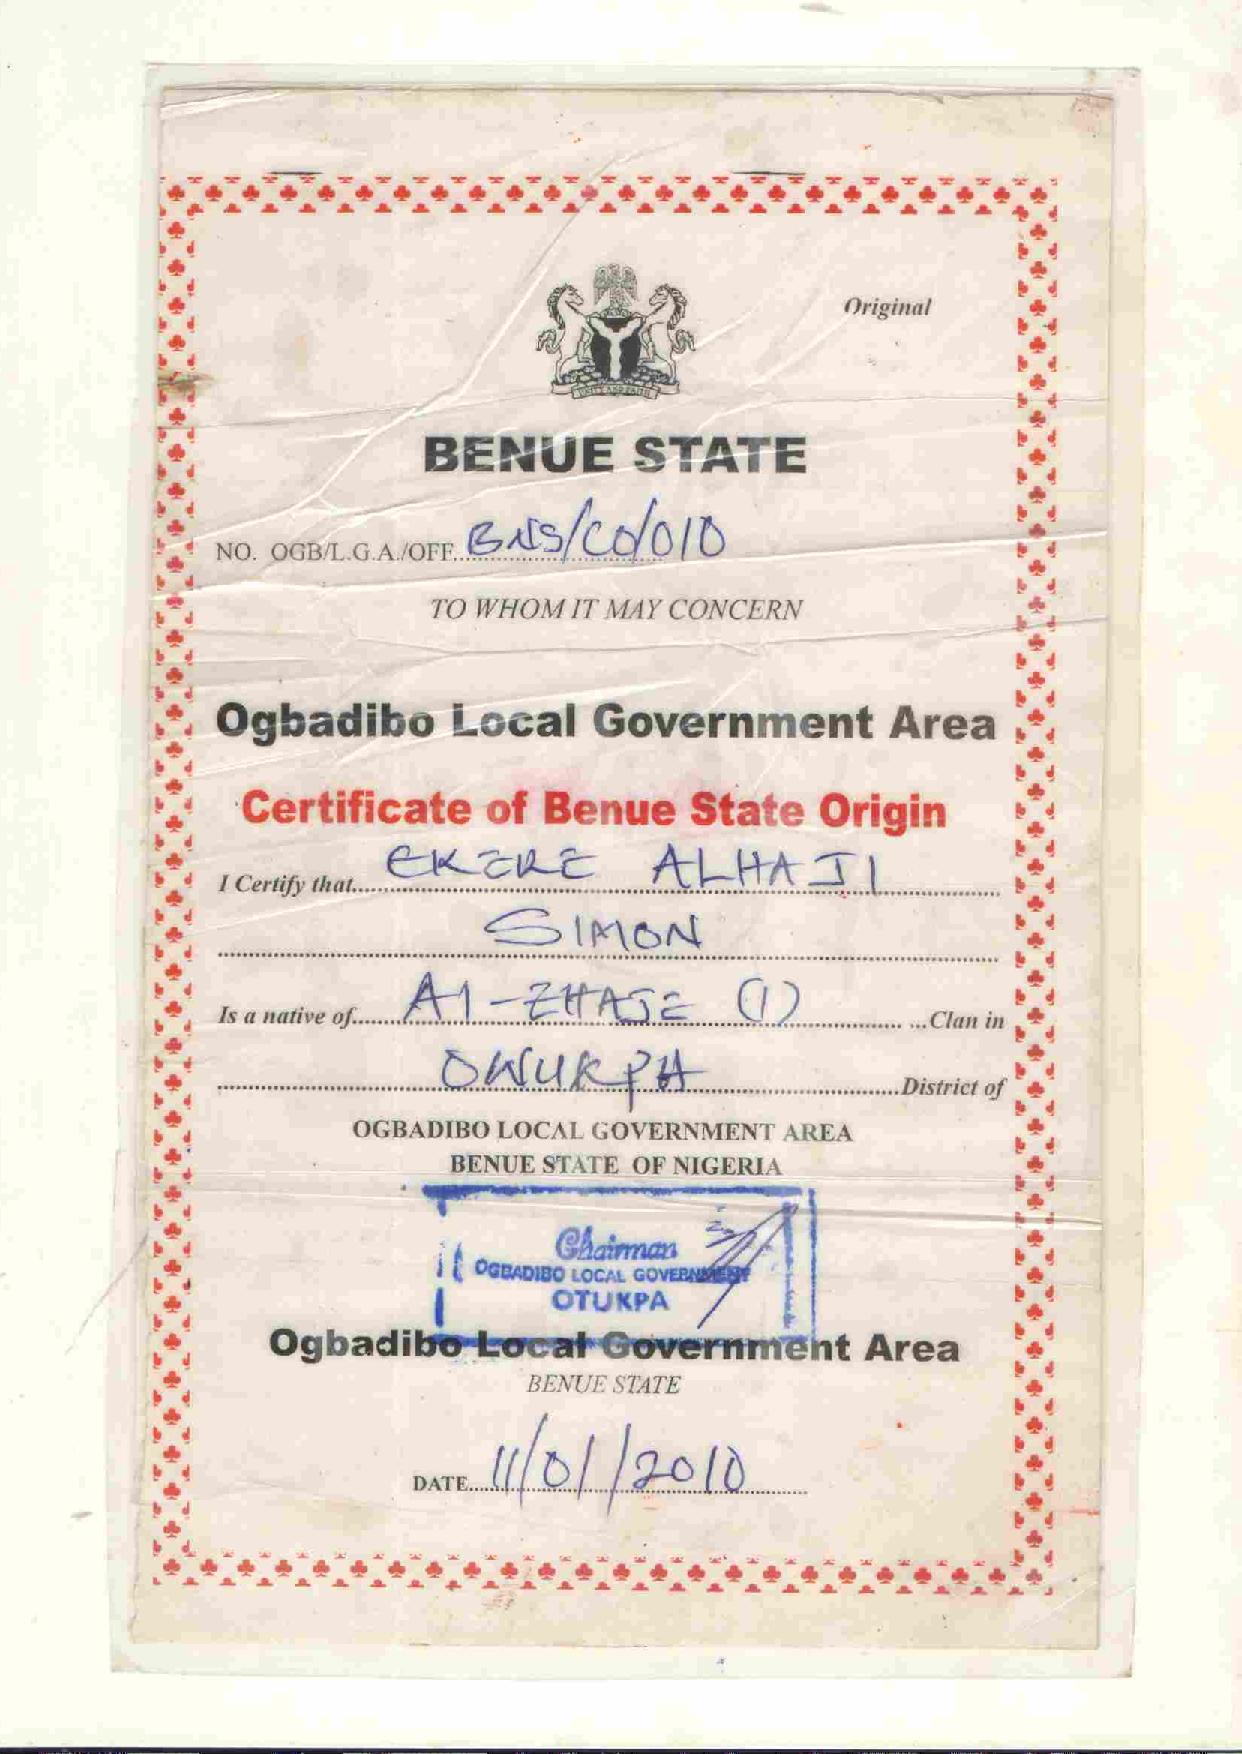 Original
UNITY AND FAITH
BENUE STATE
NO. OGB/L.G.A./OFF...BNS/CO/010
TO WHOM IT MAY CONCERN
Ogbadibo Local Government Area
Certificate of Benue State Origin
I Certify that...EKERE ALHAJI
SIMON
Is a native of...A1-EHAJE (1)...Clan in
OWUKPA...District of
OGBADIBO LOCAL GOVERNMENT AREA
BENUE STATE OF NIGERIA
Chairman
OGBADIBO LOCAL GOVERNMENT
OTUKPA
Ogbadibo Local Government Area
BENUE STATE
DATE...11/01/2010